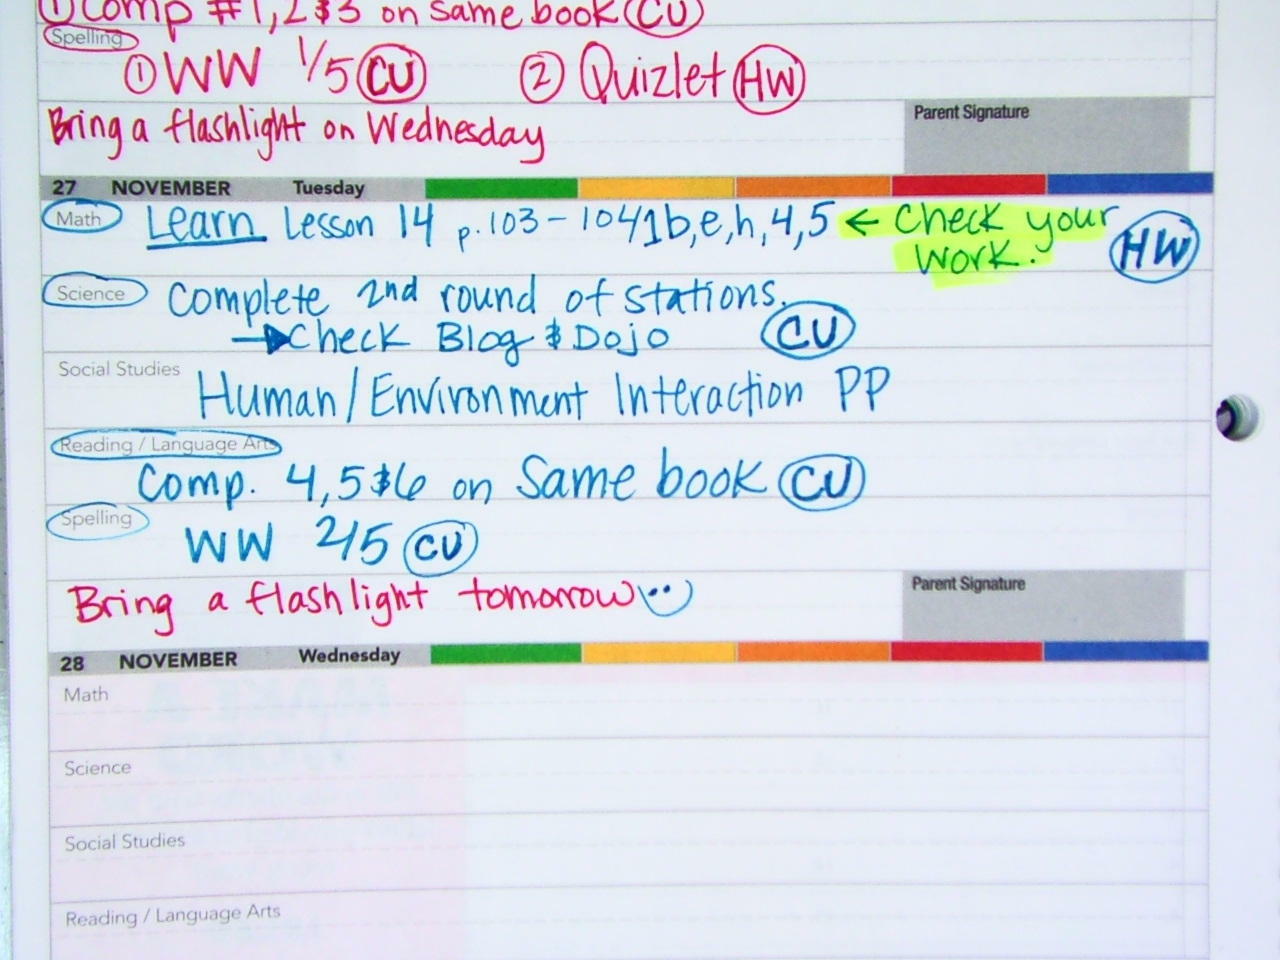 ① Comp #1, 2 & 3 on same book CU
Spelling
① WW 1/5 CU ② Quizlet HW
Bring a flashlight on Wednesday
Parent Signature
27 NOVEMBER Tuesday
Math Learn Lesson 14 p. 103-104 1b, e, h, 4, 5 ← Check your
work. HW
Science Complete 2nd round of stations.
→ Check Blog & Dojo CU
Social Studies
Human/Environment Interaction PP
Reading / Language Arts
Comp. 4, 5 & 6 on Same book CU
Spelling
WW 2/5 CU
Bring a flashlight tomorrow
Parent Signature
28 NOVEMBER Wednesday
Math
Science
Social Studies
Reading / Language Arts